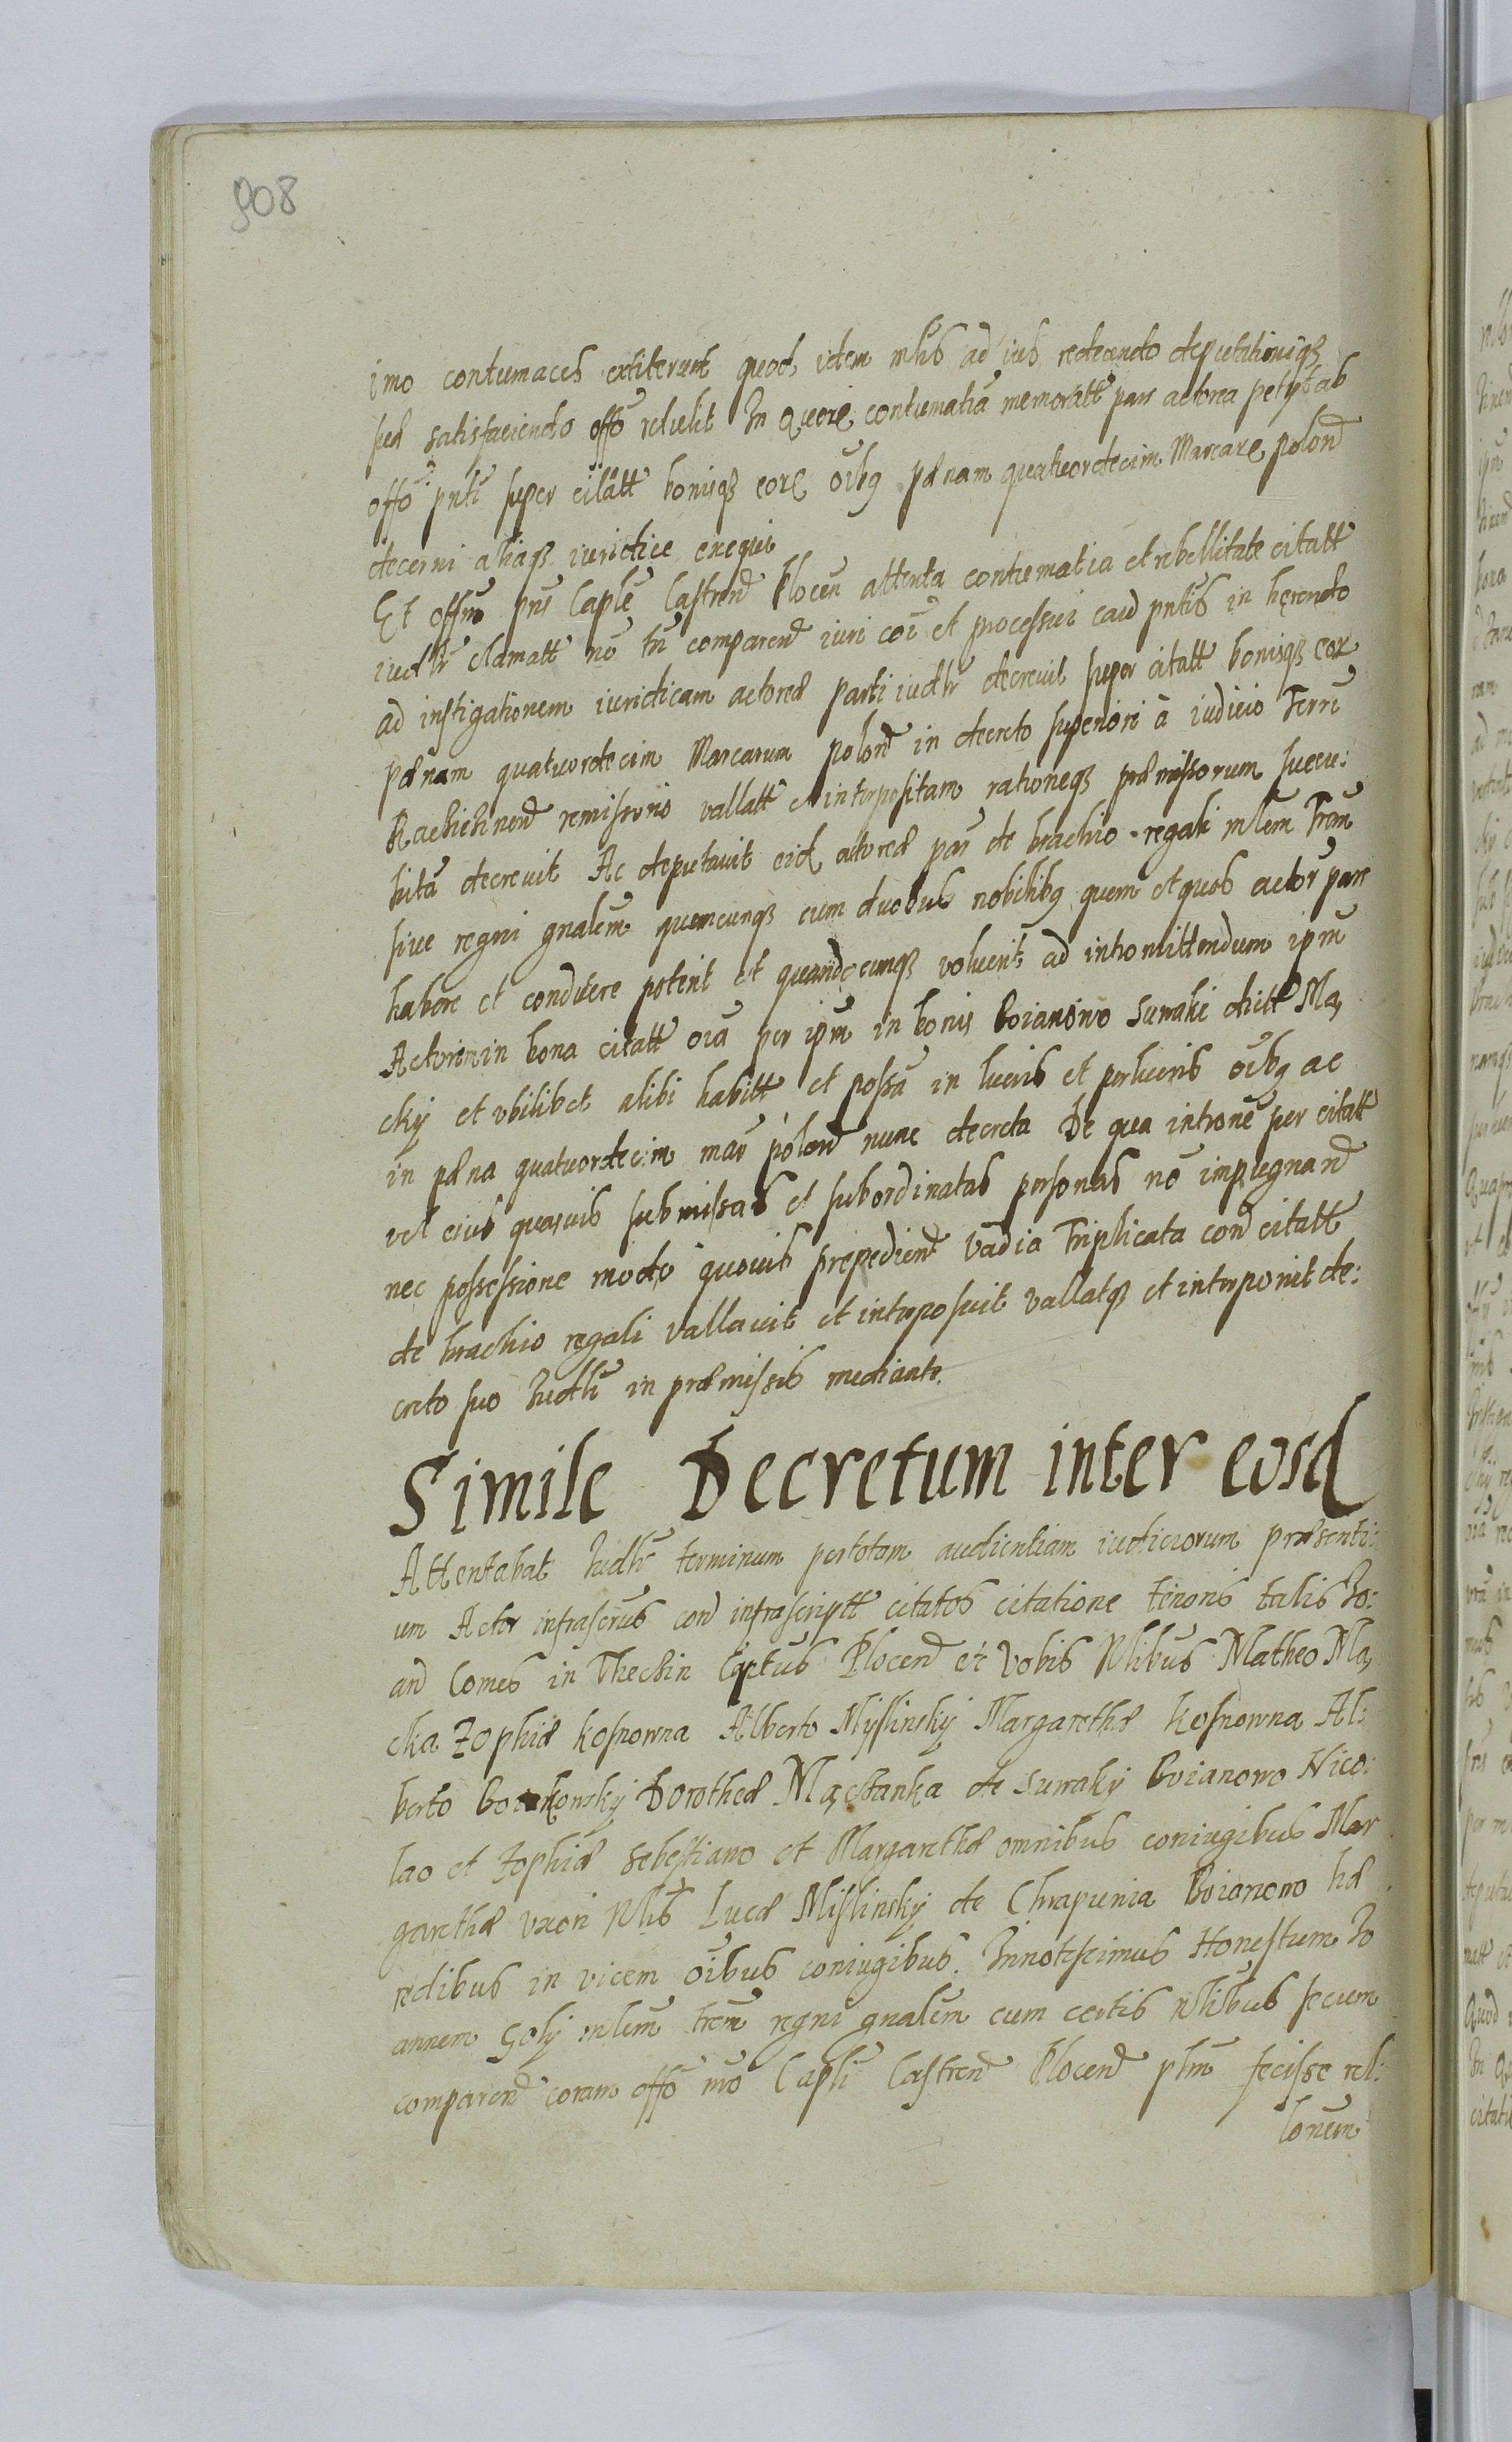 908
imo contumaces extiterunt quod idem mlis ad ius reddendo deputationiqз
suæ satisfaciendo offo retulit In Quorꝝ contumatiã memoratt pars actorea petijt ab
offo pnti super citatt bonisqз eorꝝ oibꝫ pænam quatuordecim Marcarꝝ polond
decerni aliaqз iuridice exequi
Et offm pns Caplē Castrens Plocen attenta contumatia et rebellitate citatt
iudlr clamatt nō tn comparend iuri coi et processui caus pntis in hærendo
ad instigationem iuridicam actoreæ parti iudlr decrevit super citatt bonisqз eor
pænam quatuordecim Marcarum polond in decreto superiori à iudicio Terrī
remissorio vallatt et interpositam rationeqз præmissorum succu:
bitã decrevit Ac deputavit eid actoreæ par de brachio regali mlem Tram
sive regni gnalem quemcunqз cum duobus nobilibꝫ quem et quos actor pars
habere et conducere poterit et quandocunqз voluerit ad intromittendum ipm
Actorem in bona citatt oia per ipm in bonis Boianowo Surraki dictt Ma,
cky et ubilibet alibi habitt et possa in lucris et perlucris oibꝫ ac
in pæna quatuordecim mar polond nunc decreta De qua intronē per citatt
vel eius quasvis submissas et subordinatas personas nō impugnand
nec possessione modo quovis prepediend vadia Triplicata con citatt
de brachio regali vallavit et interposuit vallatqз et interponit de:
creto suo Iudli in præmissis mediante.
Simile Decretum inter eosd
Attentabat Iudlr terminum per totam audientiam iudiciorum præsenti:
um Actor infrascrus con infrascriptt citatos citatione tenoris talis Jo:
an Comes in Thechin Captus Plocen etc Vobis Nlibus Matheo Ma,
cka Zophiæ Kosnowna Alberto Myslinsky Margarethæ Kosnowna Al:
berto Dorotheæ Mąckanka de Surraky Boianowo Nico:
lao et Zophiæ Sebestiano et Margarethæ omnibus coniugibus Mar
garethæ uxori Nlis Lucæ Mislinsky de Chrapunia Boianowo hæ
redibus in vicem oibus coniugibus. Innotescimus Honestum Jo
annem Goly mlem trem regni gnalem cum certis Nlibus secum
comparen coram offo nro Capli Castren Plocen plm fecisse rel:
lonem